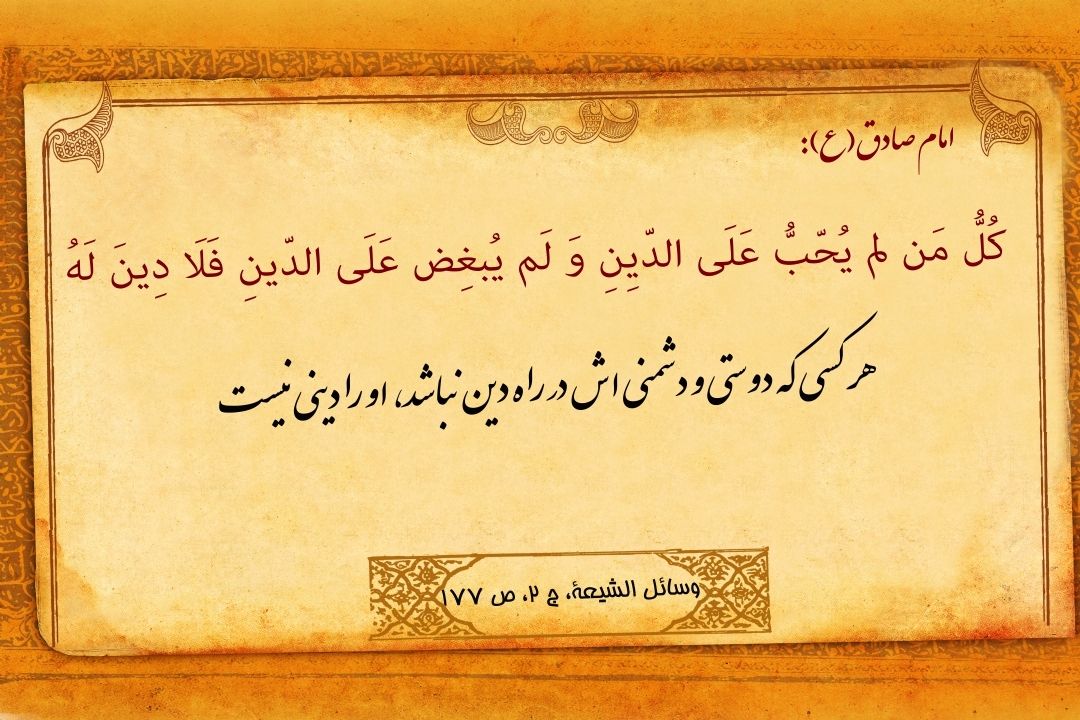 امام صادق(ع):
کُلُّ مَن لم یُحّبُّ عَلَی الدّیِنِ وَ لَم یُبغِض عَلَی الدّینِ فَلَا دِینَ لَهُ
هر کسی که دوستی و دشمنی اش در راه دین نباشد، او را دینی نیست
وسائل الشیعة، ج ۲، ص ۱۷۷